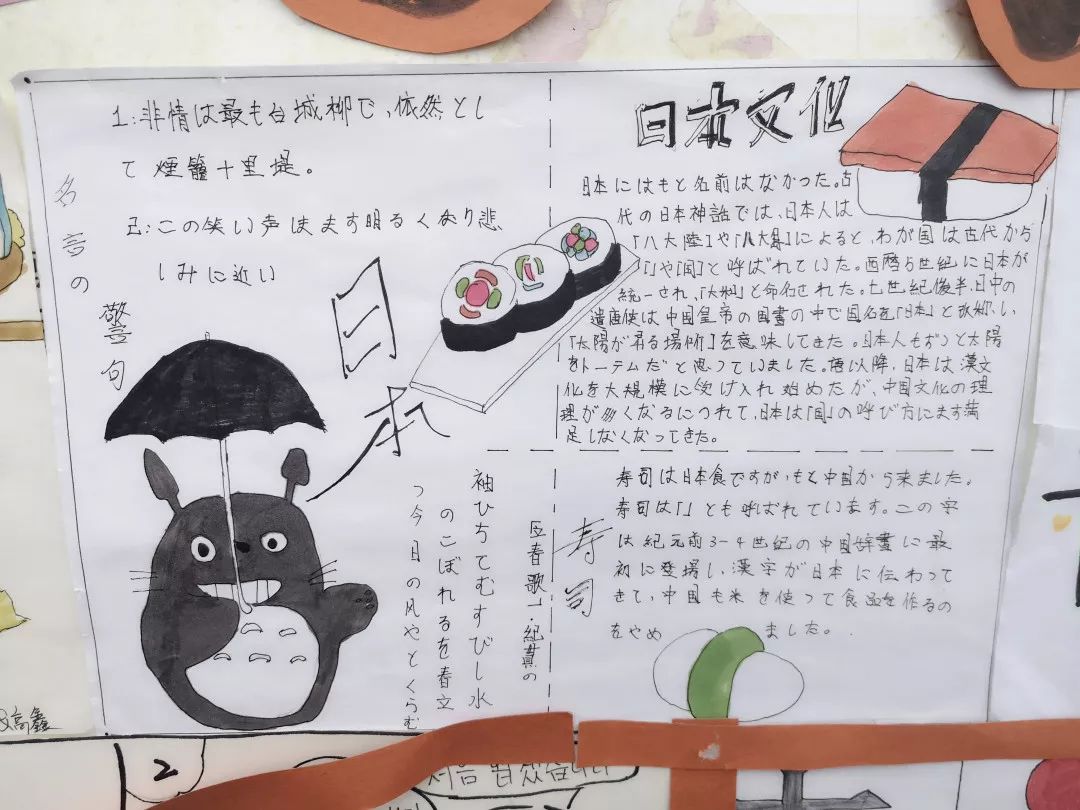 1:非情は最も台城柳で、依然とし
て 煙籠十里堤。
2:この笑い声はます明るくなり悲
しみに近い
名言の警句
日本
日本文化
日本にはもと名前はなかった。古
代の日本神話では、日本人は
「八大陸」や「八大島」によると、わが国は古代から
「」や「国」と呼ばれていた。西暦5世紀に日本が
統一され、「大和」と命名された。七世紀後半、日中の
遣唐使は中国皇帝の国書の中で国名を「日本」と
「太陽が昇る場所」を意味してきた。日本人もずっと太陽
をトーテムだと思っていました。唐以降、日本は漢文
化を大規模に受け入れ始めたが、中国文化の理
理が多くなるにつれて、日本は「国」の呼び方にます満
足しなくなってきた。
春歌一・紀貫の
袖ひちてむすびし水
のこぼれるを春立
つ今日の風やとくらむ
寿司
寿司は日本食ですが、もと中国から来ました。
寿司は「」とも呼ばれています。この字
は紀元前3-4世紀の中国辞書に最
初に登場し、漢字が日本に伝わって
きて、中国も米を使って食品を作るの
をやめ ました。
高鑫
2